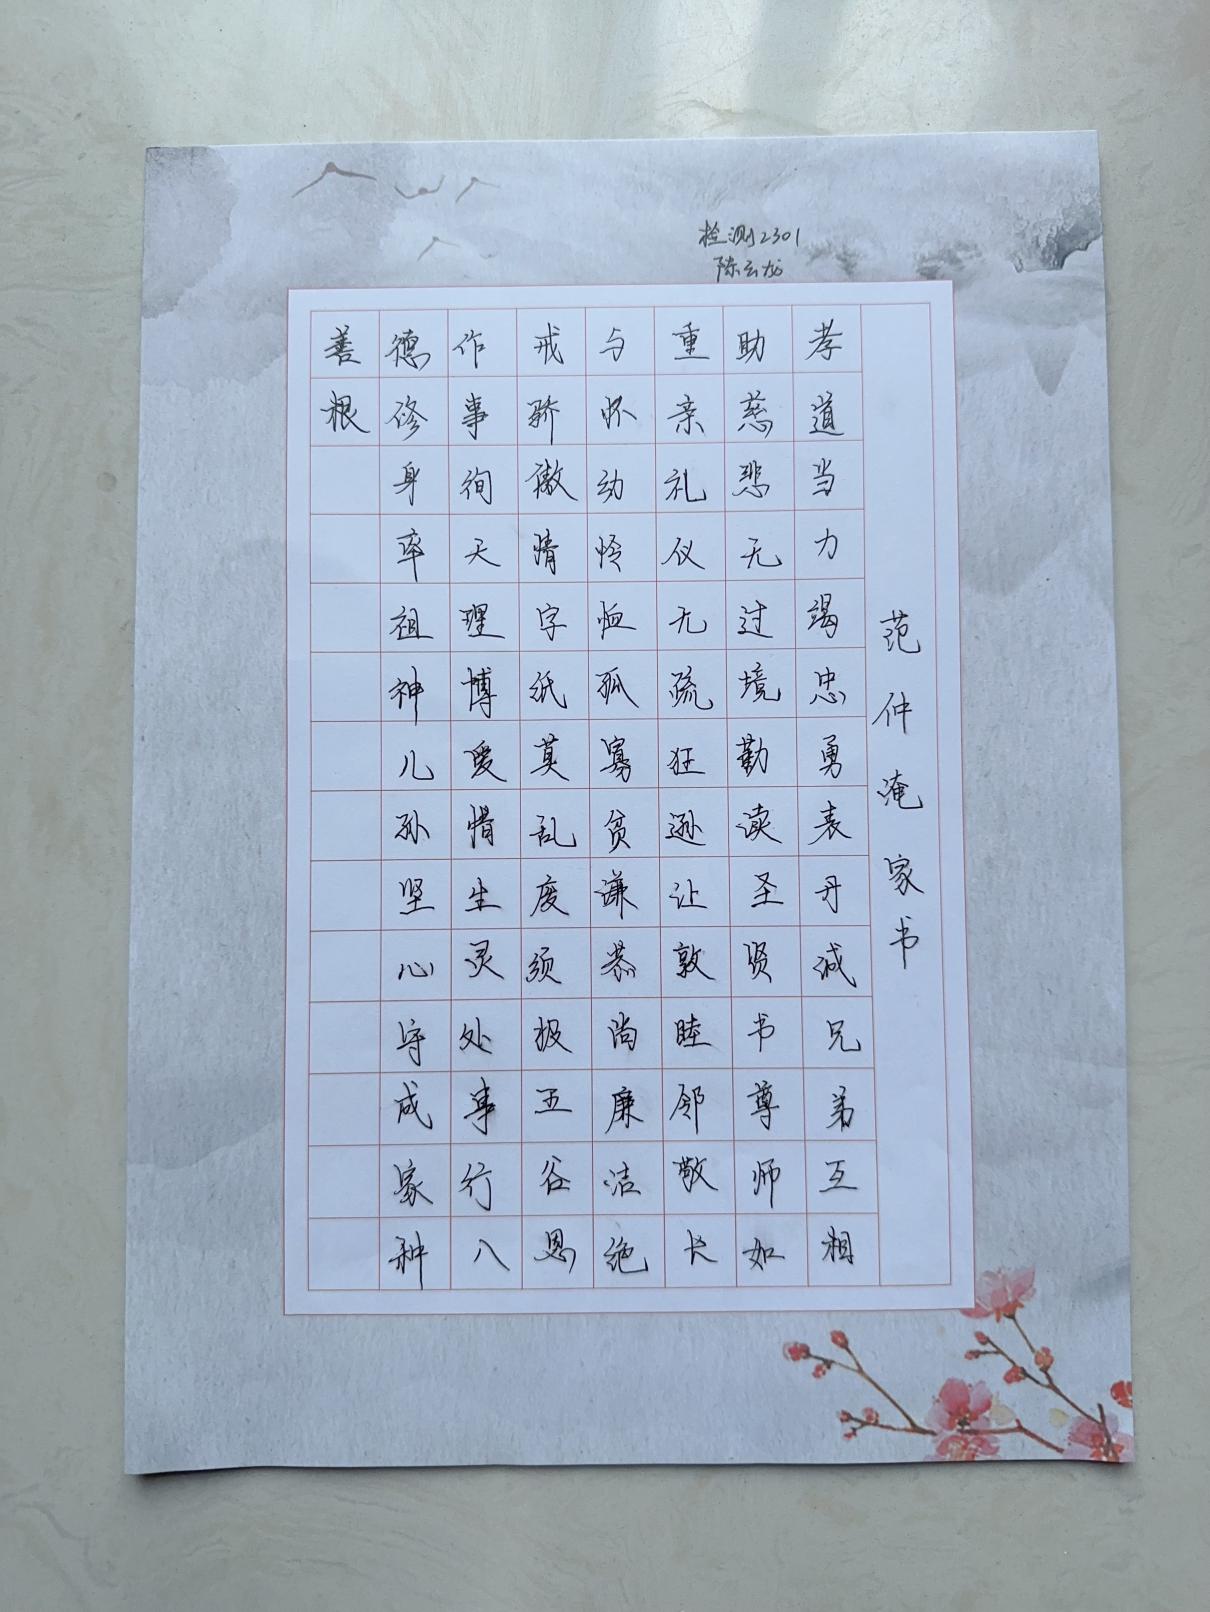 检测2301
陈云龙
范仲淹家书
孝道当力竭忠勇表丹诚兄弟互相
助慈悲无过境勤读圣贤书尊师如
重亲礼仪无疏狂逊让敦睦邻敬长
与怀幼怜恤孤寡贫谦恭尚廉洁绝
戒骄傲情字纸莫乱废须报五谷恩
作事徇天理博爱惜生灵处事行八
德修身率祖神儿孙坚心守成家种
善根